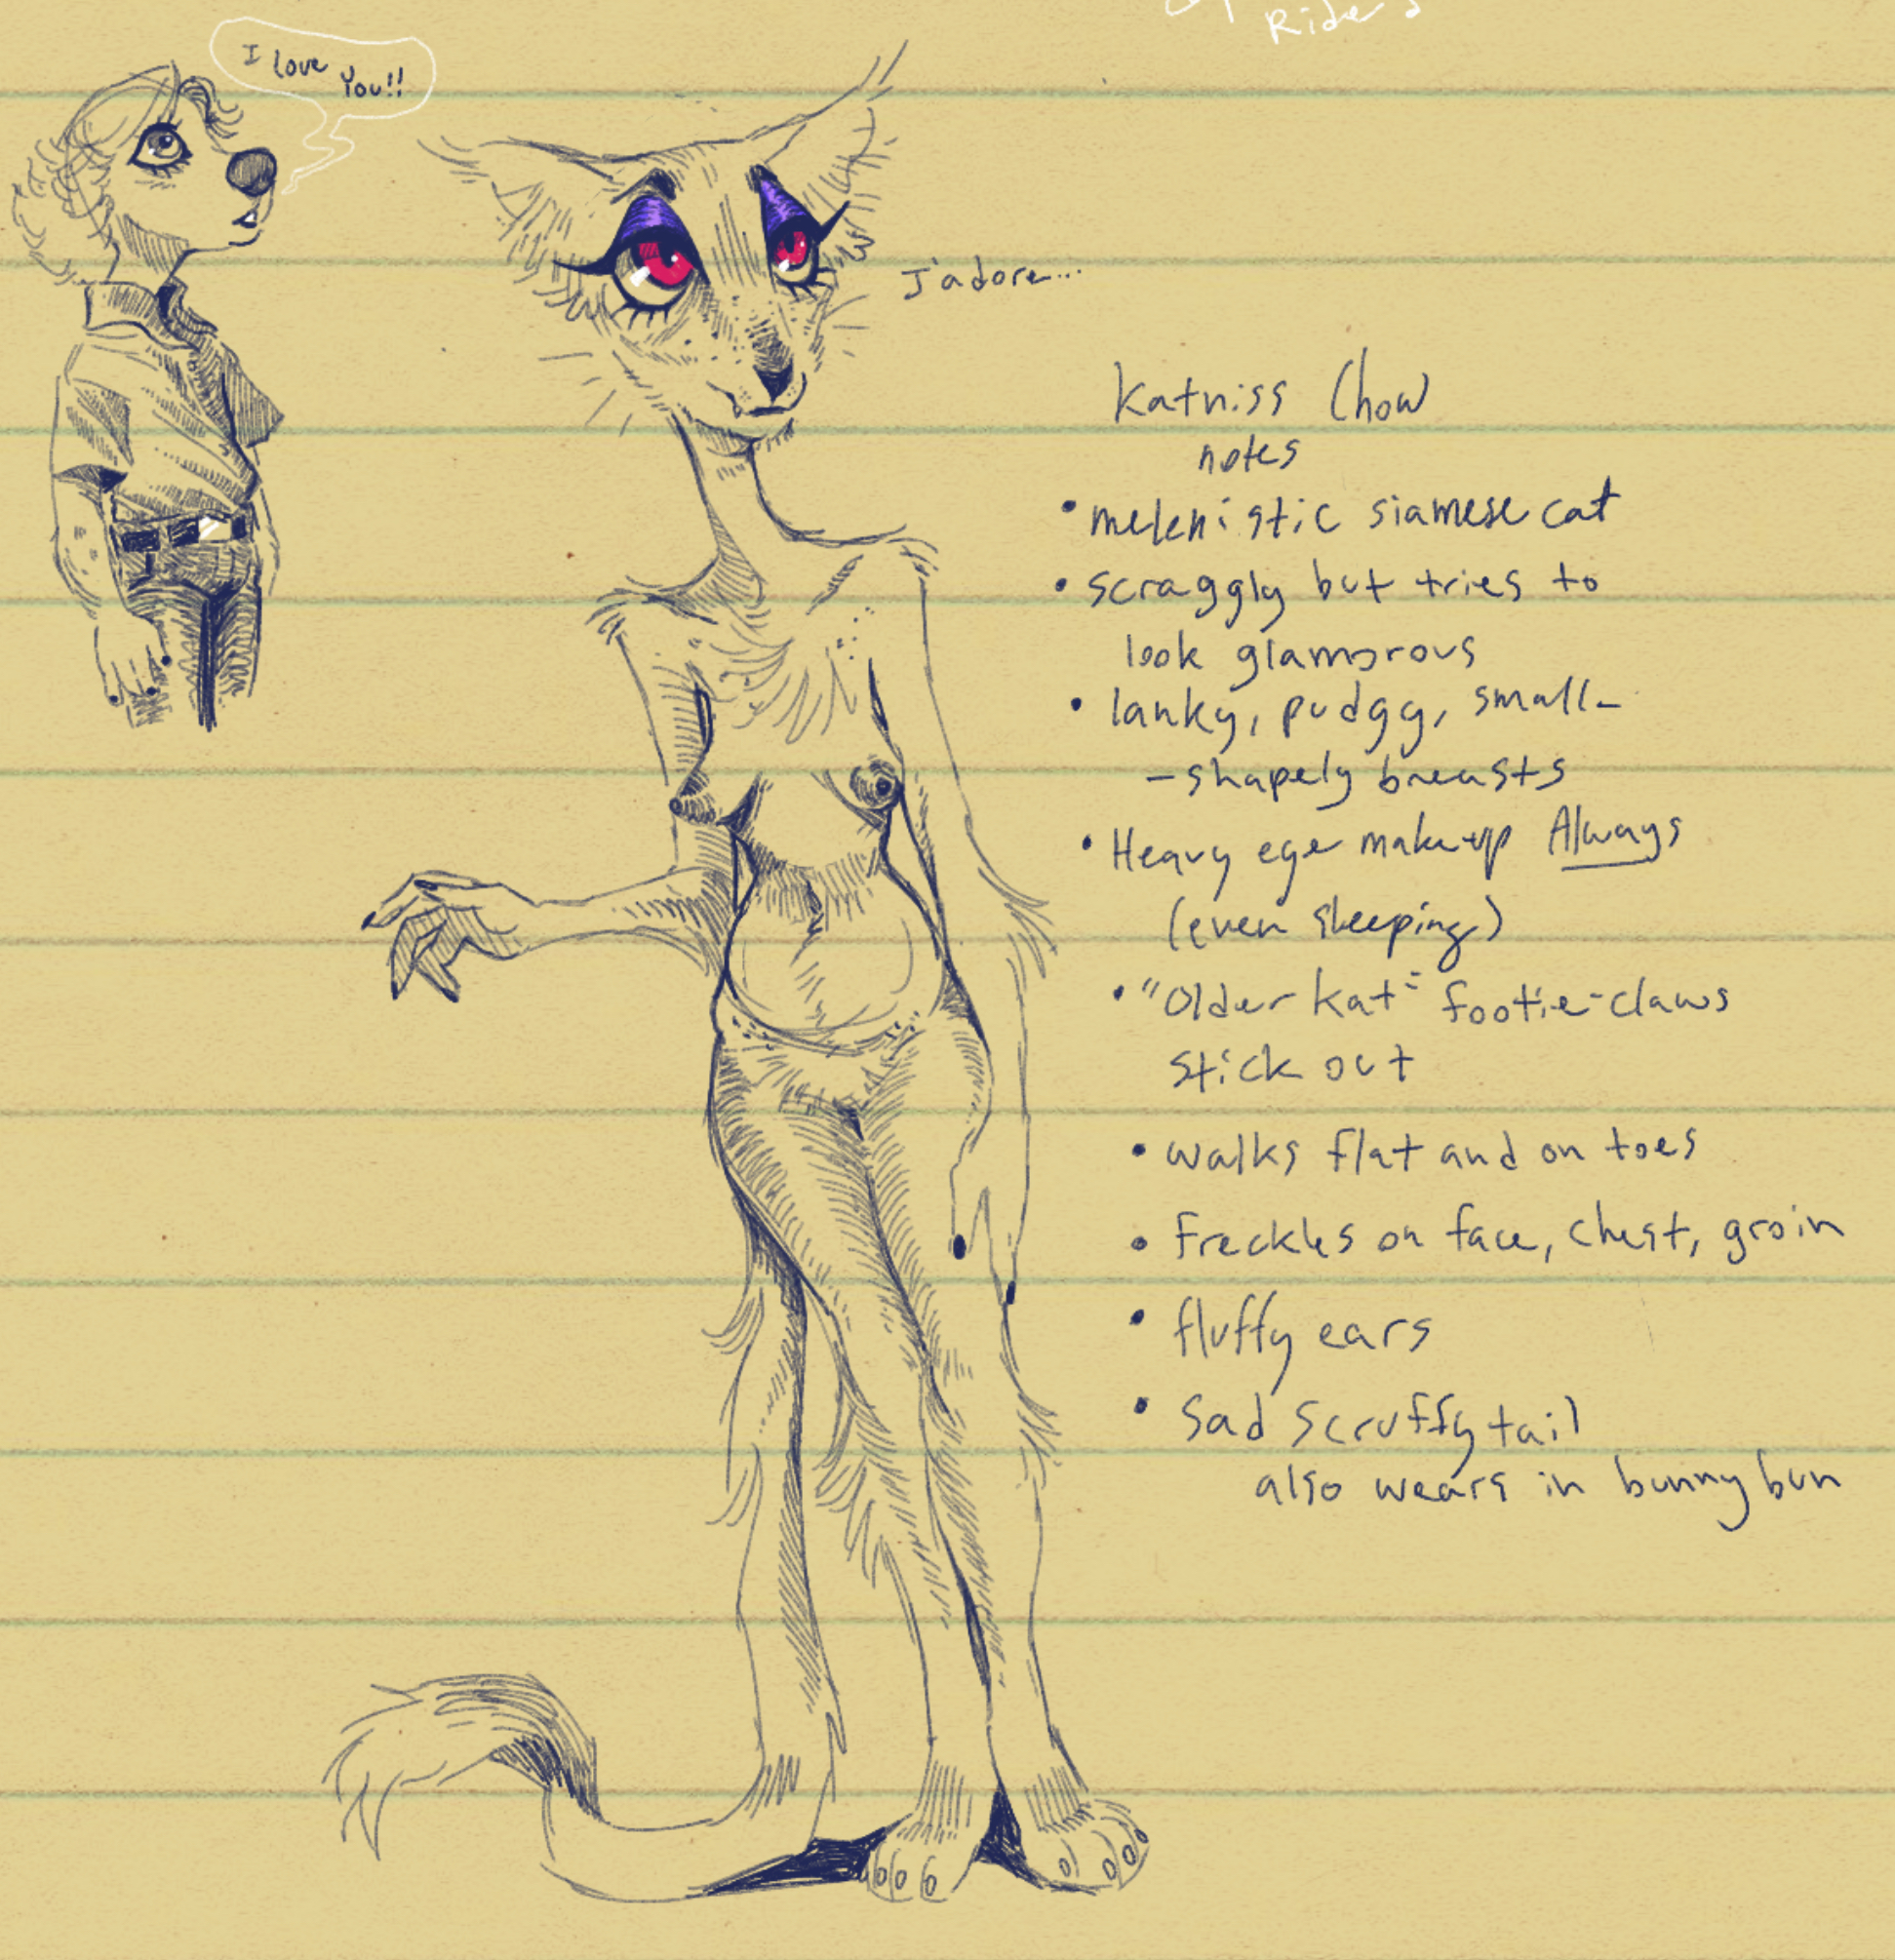 Rider
I love
You!!
J'adore...
Katniss Chow
notes
• melenistic siamese cat
• scraggly but tries to
look glamorous
• lanky, pudgy, small-
-shapely breasts
• Heavy eye make-up Always
(even sleeping)
• "Older Kat" footie-claws
stick out
• walks flat and on toes
• Freckles on face, chest, groin
• fluffy ears
• Sad scruffy tail
also wears in bunny bun